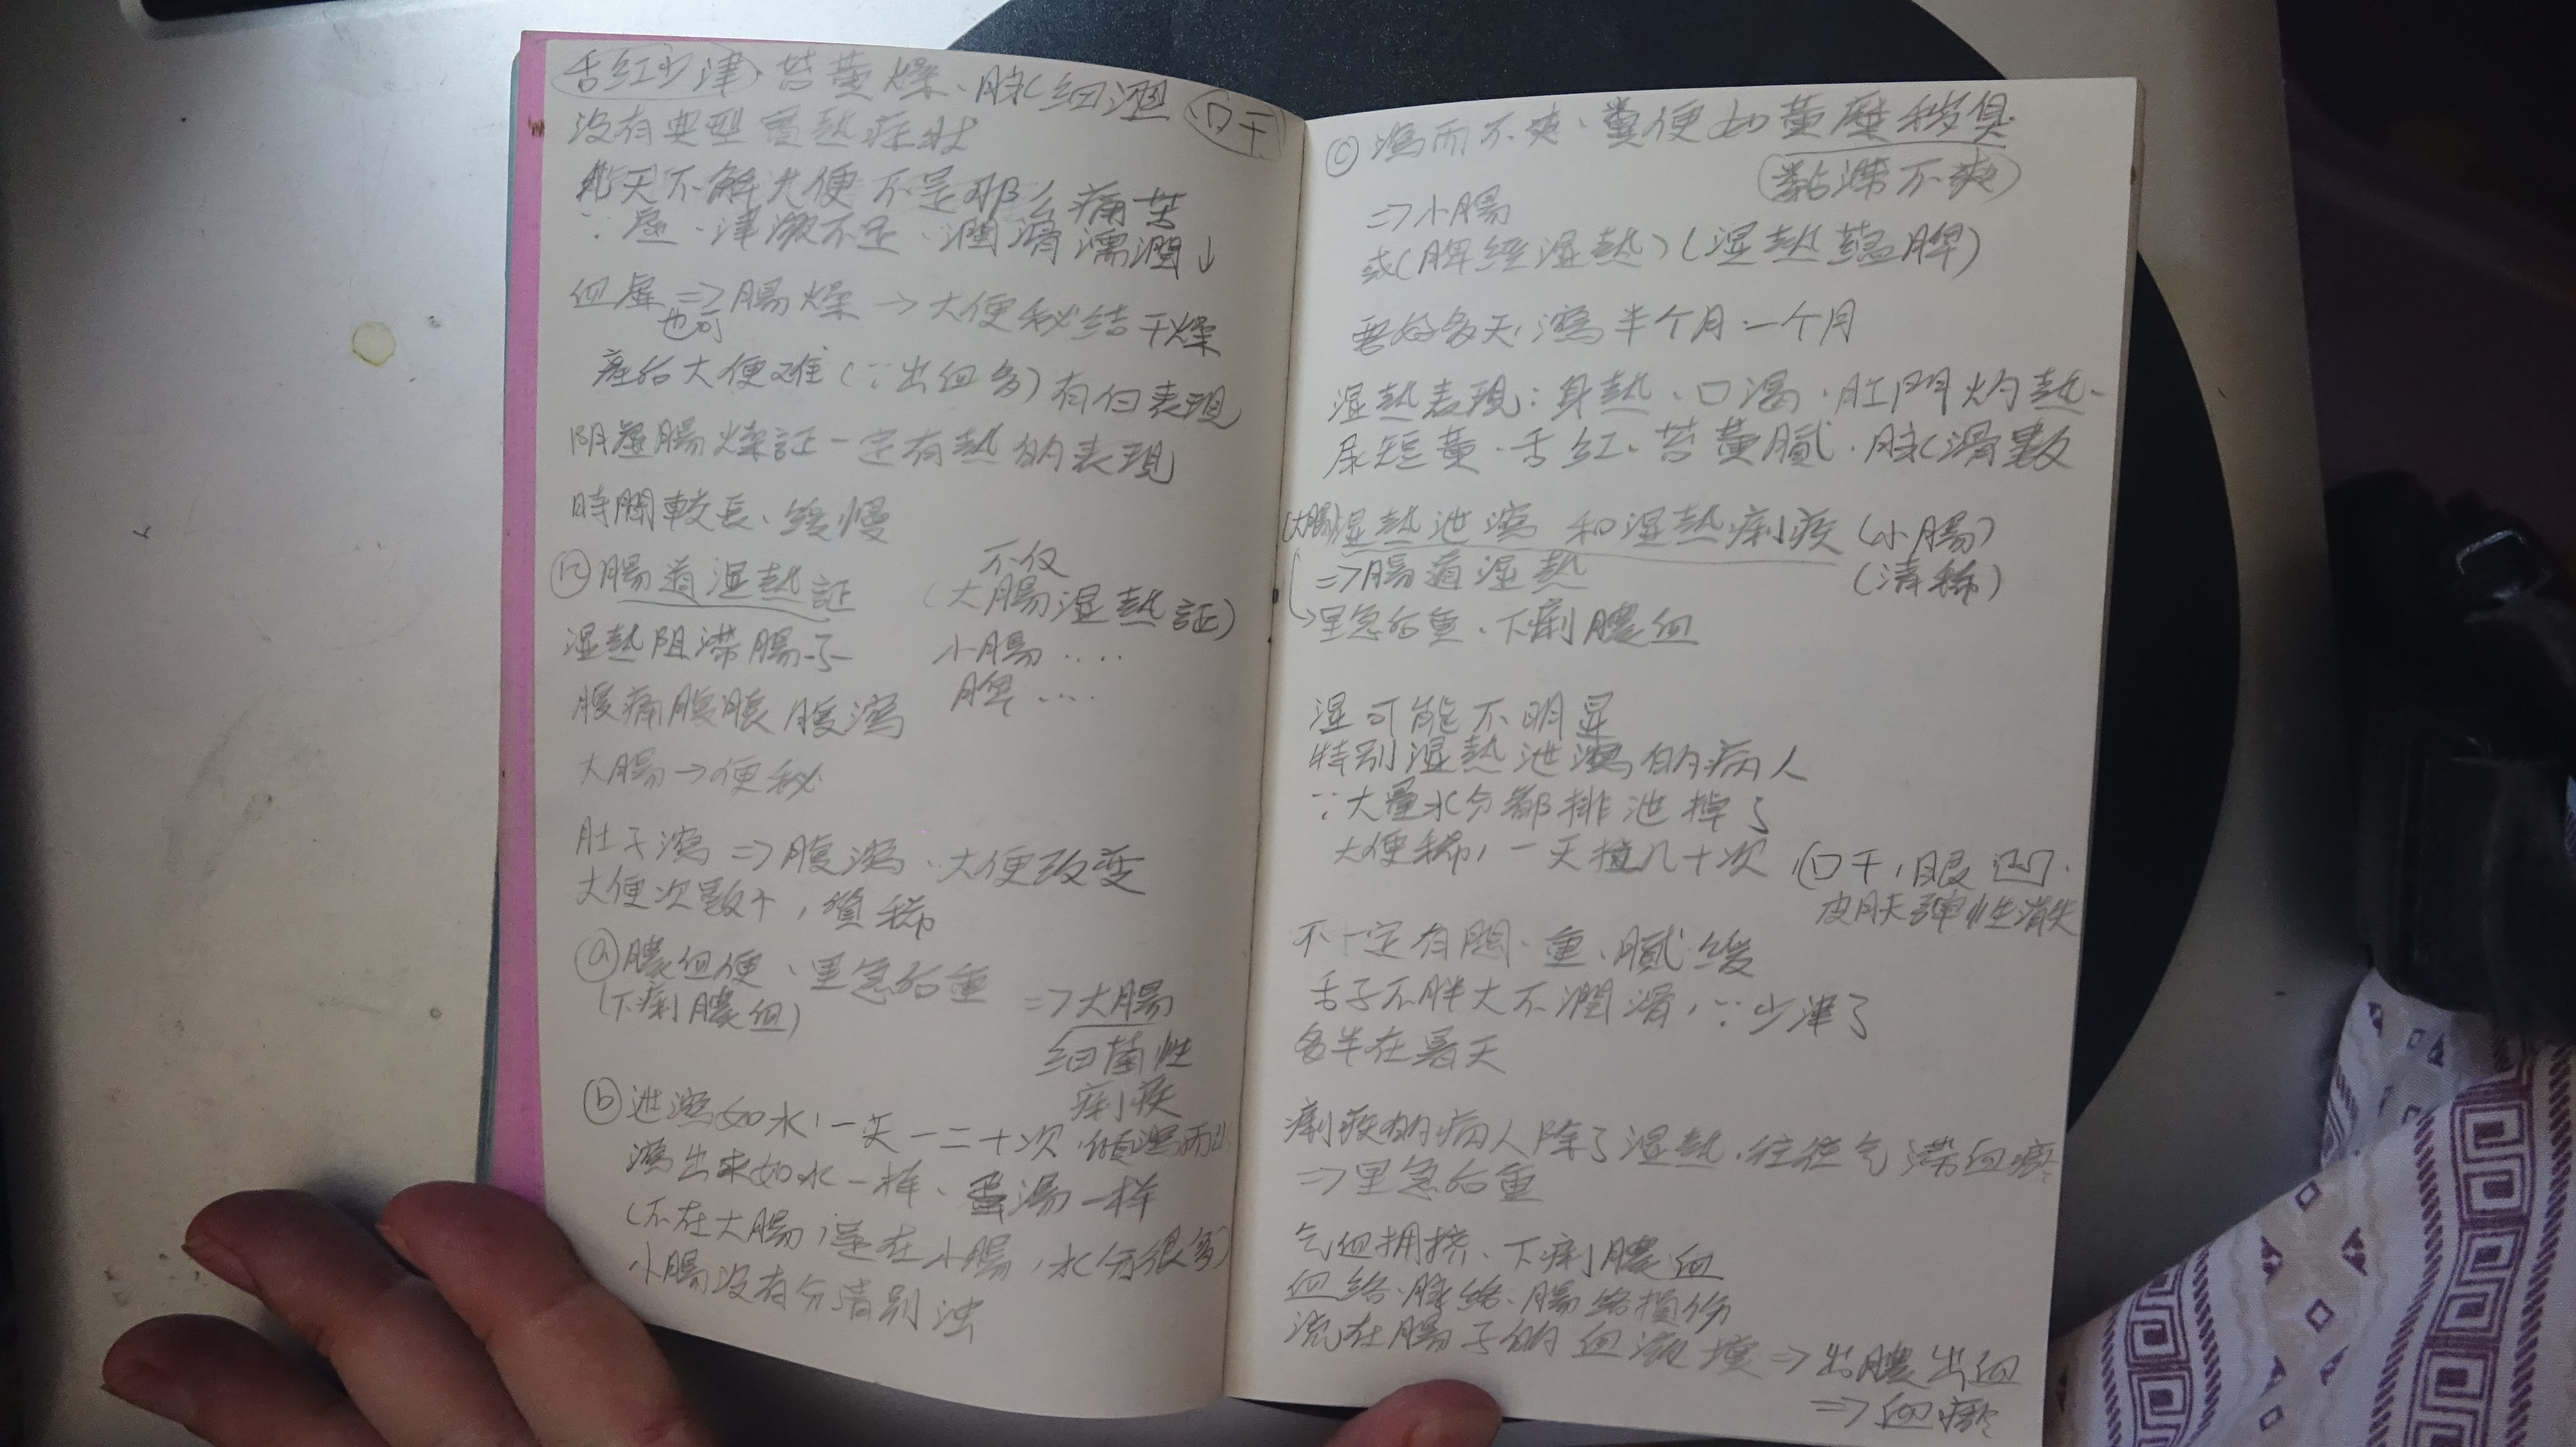 舌紅少津、苔黄燥、脉細澀 口干
没有典型實熱症状
幾天不解大便 不是那么痛苦
∵虛、津液不足、潤滑濡潤↓
血虛⇒腸燥→大便秘结干燥
也可
產后大便难(∵出血多)有白表現
阴虛腸燥証一定有熱的表現
時間較長、缓慢
腸道湿熱証
不仅
(大腸湿熱証)
湿熱阻滞腸子
小腸‥‥
脾‥‥
腹痛腹脹腹瀉
大腸→便秘
肚子瀉⇒腹瀉、大便改变
大便次數个,質稀
ⓐ膿血便、里急后重
(下痢膿血)
⇒大腸
细菌性
痢疾
ⓑ泄瀉如水,一天一二十次,傾瀉而
瀉出來如水一样、蛋湯一样
(不在大腸,還在小腸,水分很多)
小腸没有分清别浊
ⓒ瀉而不爽、糞便如黄糜秽臭
黏滞不爽
⇒小腸
或(脾经湿熱)(湿熱蘊脾)
要好多天,瀉半个月、一个月
湿熱表現:身熱、口渴、肛門灼熱、
尿短黄、舌红、苔黄腻、脉滑數
(大腸)湿熱泄瀉 和湿熱痢疾(小腸)
⇒腸道湿熱 (清稀)
→里急后重、下痢膿血
湿可能不明显
特别湿熱泄瀉的病人
∵大量水分都排泄掉了
大便稀,一天拉几十次
口干,眼凹、
皮肤弹性消失
不一定有悶、重、腻、缓
舌子不胖大不潤滑,∵少津了
多半在暑天
痢疾的病人除了湿熱,往往气滞血瘀
⇒里急后重
气血拥挤、下痢膿血
血络、脉络、腸络損伤
流在腸子的血液壞⇒出膿出血
⇒血瘀